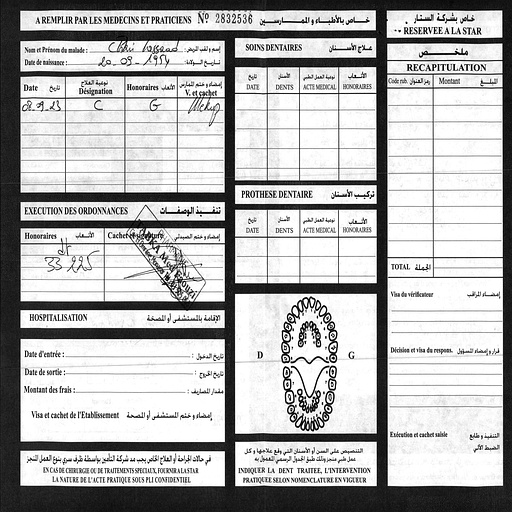 A REMPLIR PAR LES MEDECINS ET PRATICIENS Nº 2832536 خاص بالأطباء و الممارسين
Nom et Prénom du malade : إسم و لقب المريض :
Date de naissance : 20-09-1954 تاريخ الولادة :
Date تاريخ
نوعية العلاج
Désignation
Honoraires الأتعاب
إمضاء و ختم الممارس
V. et cachet
08.09.23 C G
EXECUTION DES ORDONNANCES تنفيذ الوصفات
Honoraires الأتعاب
Cachet et signature إمضاء و ختم الصيدلي
33 225
HOSPITALISATION الإقامة بالمستشفى أو المصحة
Date d'entrée : تاريخ الدخول :
Date de sortie : تاريخ الخروج :
Montant des frais : مقدار المصاريف :
Visa et cachet de l'Etablissement إمضاء و ختم المستشفى أو المصحة
في حالات الجراحة أو العلاج الخاص يجب مد شركة التأمين بواسطة ظرف سري بنوع العمل المنجز
EN CAS DE CHIRURGIE OU DE TRAITEMENTS SPECIAUX, FOURNIR A LA STAR
LA NATURE DE L'ACTE PRATIQUE SOUS PLI CONFIDENTIEL
SOINS DENTAIRES علاج الأسنان
تاريخ الأسنان نوعية العمل الطبي الأتعاب
DATE DENTS ACTE MEDICAL HONORAIRES
PROTHESE DENTAIRE تركيب الأسنان
تاريخ الأسنان نوعية العمل الطبي الأتعاب
DATE DENTS ACTE MEDICAL HONORAIRES
D G
التنصيص على السن أو الأسنان التي وقع علاجها و كل
عمل طبي منجز وذلك طبق الجدول الرسمي المعمول به
INDIQUER LA DENT TRAITEE, L'INTERVENTION
PRATIQUEE SELON NOMENCLATURE EN VIGUEUR
خاص بشركة الستار
RESERVEE A LA STAR
ملخص
RECAPITULATION
Code rub. رمز العنوان Montant المبلغ
TOTAL الجملة
Visa du vérificateur إمضاء المراقب
Décision et visa du respons. قرار و إمضاء المسؤول
Exécution et cachet saisie التنفيذ و طابع
الضبط الآلي